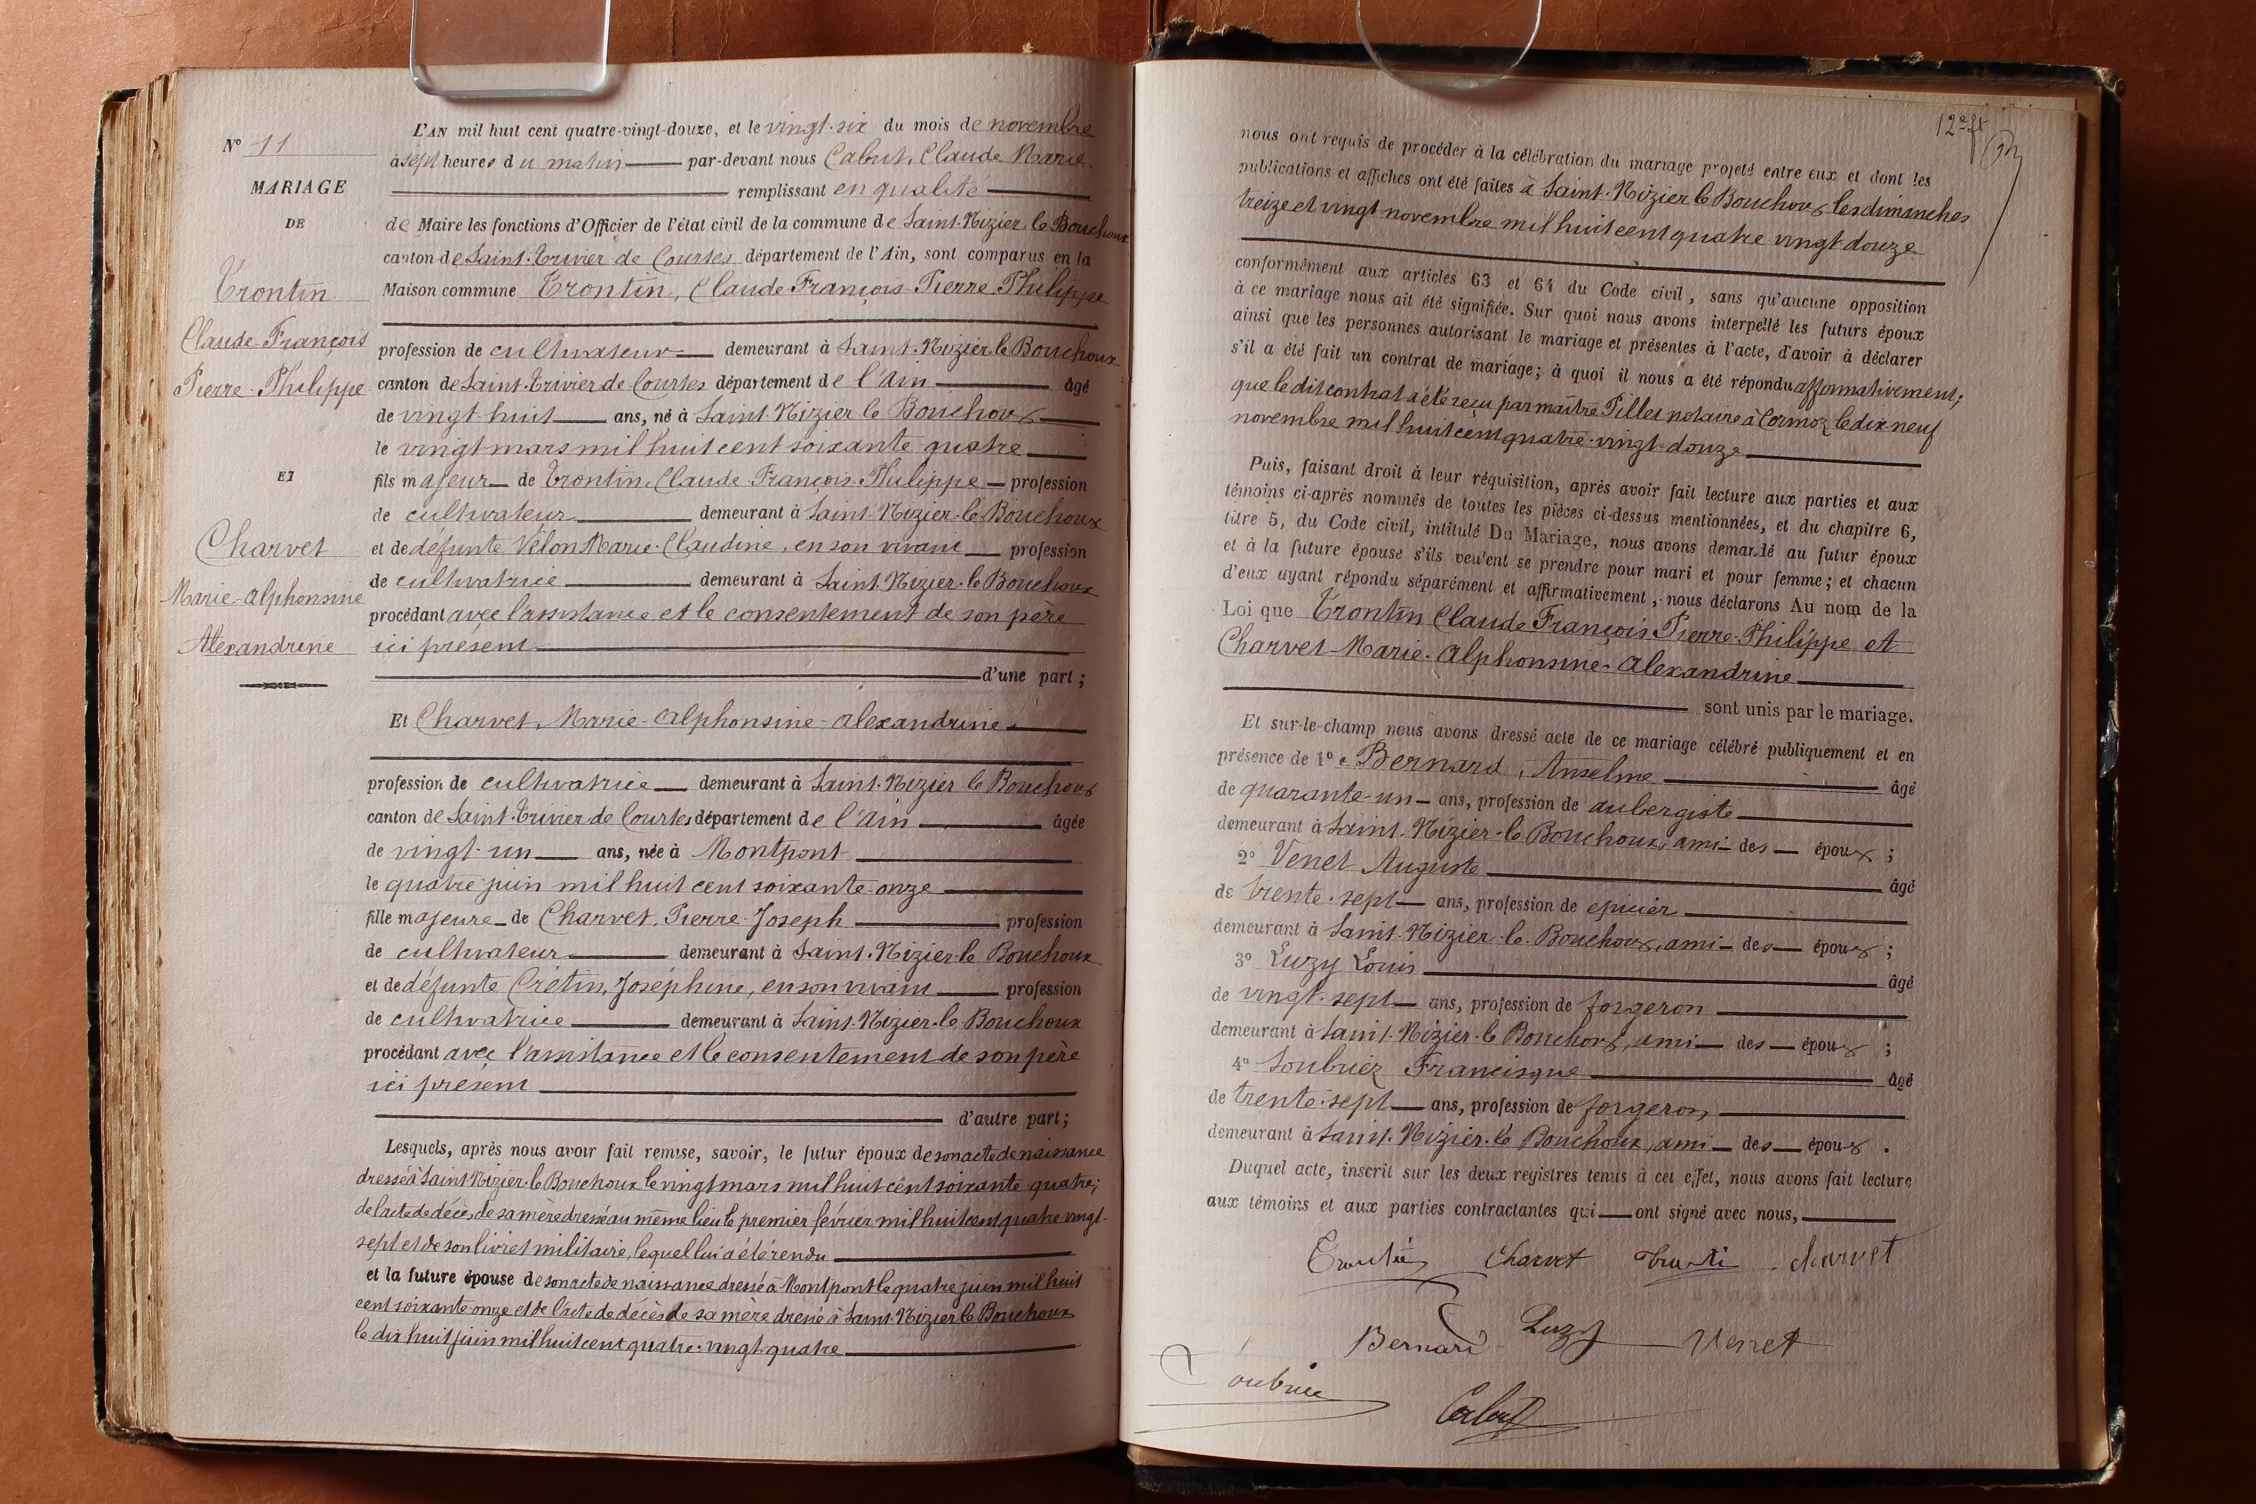 N° 11
MARIAGE
DE
Trontin
Claude-François
Pierre-Philippe
ET
Charvet
Marie-Alphonsine
Alexandrine
L'AN mil huit cent quatre-vingt-douze, et le vingt-six du mois de novembre
à sept heures du matin par-devant nous Cabut, Claude Marie
remplissant en qualité
de Maire les fonctions d'Officier de l'état civil de la commune de Saint-Nizier le Bouchoux
canton de Saint-Trivier de Courtes département de l'Ain, sont comparus en la
Maison commune Trontin, Claude-François-Pierre-Philippe
profession de cultivateur demeurant à Saint-Nizier le Bouchoux
canton de Saint-Trivier de Courtes département de l'Ain âgé
de vingt huit ans, né à Saint Nizier le Bouchoux
le vingt mars mil huit cent soixante quatre
fils majeur de Trontin, Claude-François-Philippe profession
de cultivateur demeurant à Saint-Nizier-le-Bouchoux
et de défunte Vélon Marie-Claudine, en son vivant profession
de cultivatrice demeurant à Saint-Nizier-le Bouchoux
procédant avec l'assistance et le consentement de son père
ici présent
d'une part ;
Et Charvet, Marie-Alphonsine-Alexandrine
profession de cultivatrice demeurant à Saint-Nizier le Bouchoux
canton de Saint-Trivier de Courtes département de l'Ain âgée
de vingt-un ans, née à Montpont
le quatre juin mil huit cent soixante-onze
fille majeure de Charvet, Pierre-Joseph profession
de cultivateur demeurant à Saint-Nizier-le Bouchoux
et de défunte Crétin, Joséphine, en son vivant profession
de cultivatrice demeurant à Saint-Nizier-le Bouchoux
procédant avec l'assistance et le consentement de son père
ici présent
d'autre part ;
Lesquels, après nous avoir fait remise, savoir, le futur époux de son acte de naissance
dressé à Saint Nizier-le Bouchoux le vingt mars mil huit cent soixante-quatre ;
de l'acte de décès de sa mère dressé au même lieu le premier février mil huit cent quatre vingt-
sept et de son livret militaire, lequel lui a été rendu
et la future épouse de son acte de naissance dressé à Montpont le quatre juin mil huit
cent soixante-onze et de l'acte de décès de sa mère dressé à Saint-Nizier le Bouchoux
le dix huit juin mil huit cent quatre-vingt-quatre
12e ft
nous ont requis de procéder à la célébration du mariage projeté entre eux et dont les
publications et affiches ont été faites à Saint-Nizier le Bouchoux les dimanches
treize et vingt novembre mil huit cent quatre vingt douze
conformément aux articles 63 et 64 du Code civil, sans qu'aucune opposition
à ce mariage nous ait été signifiée. Sur quoi nous avons interpellé les futurs époux
ainsi que les personnes autorisant le mariage et présentes à l'acte, d'avoir à déclarer
s'il a été fait un contrat de mariage ; à quoi il nous a été répondu affirmativement ;
que le dit contrat a été reçu par maître Pillet notaire à Cormoz le dix neuf
novembre mil huit cent quatre-vingt-douze
Puis, faisant droit à leur réquisition, après avoir fait lecture aux parties et aux
témoins ci-après nommés de toutes les pièces ci-dessus mentionnées, et du chapitre 6,
titre 5, du Code civil, intitulé Du Mariage, nous avons demandé au futur époux
et à la future épouse s'ils veulent se prendre pour mari et pour femme ; et chacun
d'eux ayant répondu séparément et affirmativement, nous déclarons Au nom de la
Loi que Trontin Claude François Pierre-Philippe et
Charvet-Marie-Alphonsine-Alexandrine
sont unis par le mariage.
Et sur-le-champ nous avons dressé acte de ce mariage célébré publiquement et en
présence de 1° Bernard, Anselme âgé
de quarante-un ans, profession de aubergiste
demeurant à Saint-Nizier-le Bouchoux, ami des époux ;
2° Venet Auguste âgé
de trente-sept ans, profession de épicier
demeurant à Saint-Nizier-le-Bouchoux, ami des époux ;
3° Luzy Louis âgé
de vingt-sept ans, profession de forgeron
demeurant à Saint-Nizier-le Bouchoux, ami des époux ;
4° Soubriez Francisque âgé
de trente-sept ans, profession de forgeron
demeurant à Saint-Nizier-le Bouchoux, ami des époux .
Duquel acte, inscrit sur les deux registres tenus à cet effet, nous avons fait lecture
aux témoins et aux parties contractantes qui ont signé avec nous,
Trontin Charvet Trontin Charvet
Bernard Luzy Venet
Soubrie
Cabut